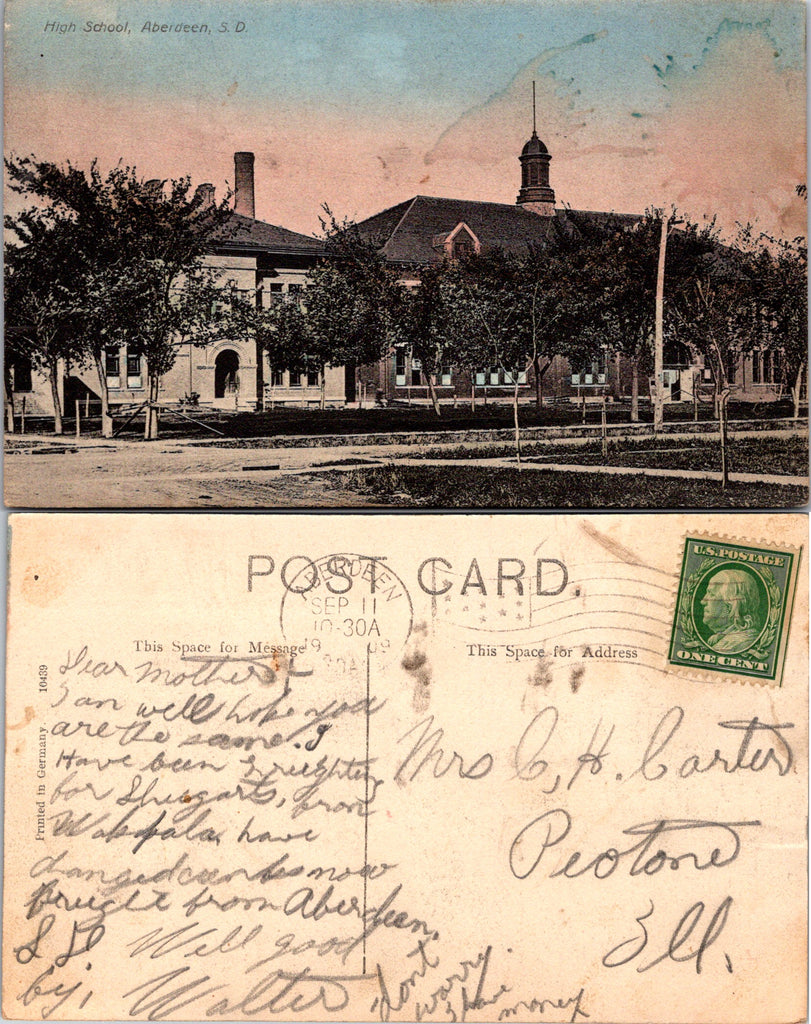 High School, Aberdeen, S. D.
POST CARD.
ABERDEEN
SEP 11
10-30A
1909
This Space for Message
This Space for Address
U.S. POSTAGE
ONE CENT
Printed in Germany. 10439
Dear Mother
I am well hope you
are the same. I
Have been Freighting
for from
Wakpala have
changed now
freight from Aberdeen,
S D. Well good
by, Walter
dont
worry.
I have
money
Mrs C, H. Carter
Peotone
Ill.